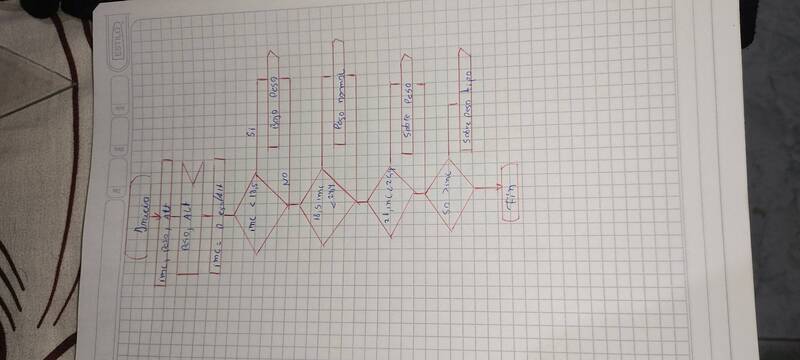 ESTILO
Inicio
imc, peso, Alt
Peso, Alt
imc = Peso/Alt
imc < 18,5
Si
Bajo Peso
NO
18,5 imc
< 24,9
Peso normal
Sobre Peso
50 > imc
Sobre peso tipo
Fin